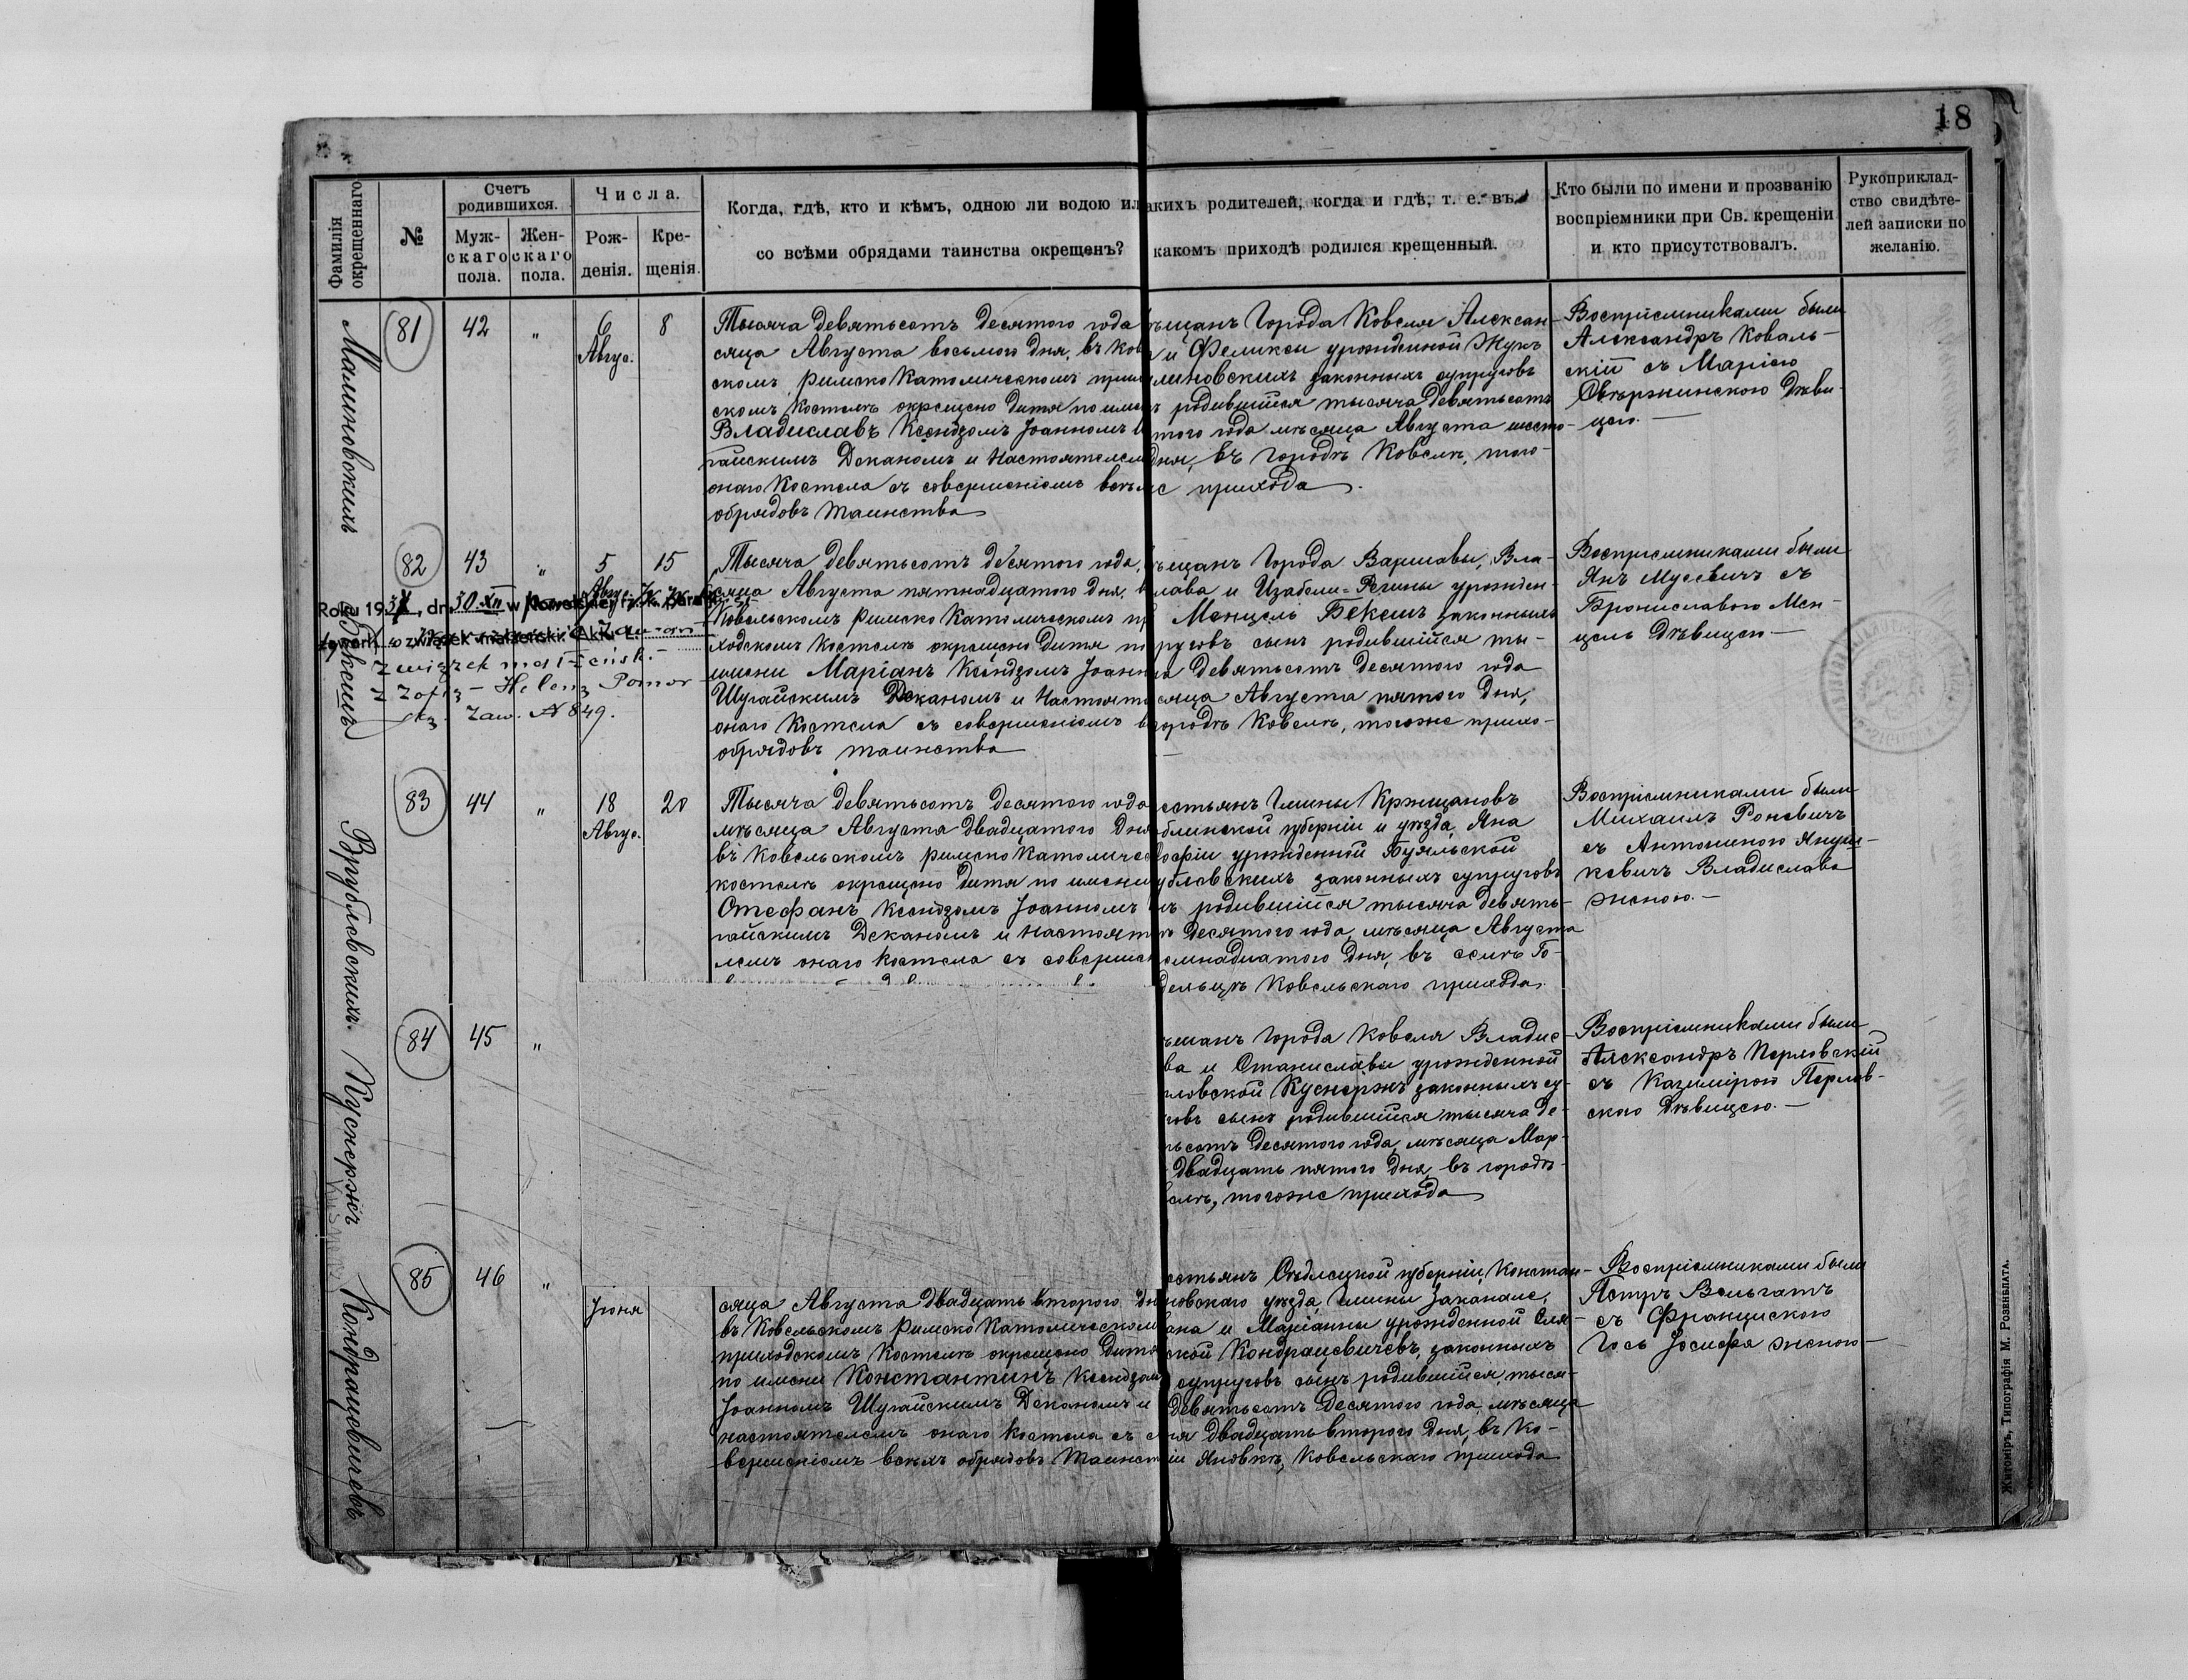 18
Фамилія окрещеннаго
№
Счетъ родившихся.
Муж-скаго пола.
Жен-скаго пола.
Числа.
Рож-денія.
Кре-щенія.
Когда, гдѣ, кто и кѣмъ, одною ли водою ил
со всѣми обрядами таинства окрещенъ?
акихъ родителей, когда и гдѣ, т. е. въ
какомъ приходѣ родился крещенный.
Кто были по имени и прозванію
воспріемники при Св. крещеніи
и кто присутствовалъ.
Рукоприклад-
ство свидѣте-
лей записки по
желанію.
Малиновскихъ
81
42
"
6
Авгус.
8
Тысяча девятьсотъ десятого года
сяца Августа восьмого дня, въ Ков
скомъ римско Католическомъ при
скомъ Костелѣ окрещено дитя по име
Владиславъ Ксендзомъ Іоанномъ
гайскимъ Деканомъ и Настоятеле
онаго Костела съ совершеніемъ всѣ
обрядовъ таинства
ѣщанъ Города Ковеля Алексан-
и Феликсы урожденной Жукъ
линовскихъ законныхъ супруговъ
ъ родившійся тысяча девятьсотъ
того года мѣсяца Августа шесто-
дня, въ Городѣ Ковелѣ, того-
е прихода.
Воспріемниками были
Александръ Коваль-
скій съ Маріею
Свѣржинскою Дѣви-
цею.—
Бексшъ
82
43
"
5
Авгус.
15
Roku 193, dn. 30.XII w
związek małżeński.
związek małżeńsk.-
z Zofią-Heleną Pomor-
ską. Zaw. № 849.
Тысяча девятьсотъ десятого года,
сяца Августа пятнадцатого дня,
Ковельскомъ римско Католическомъ п
ходскомъ Костелѣ окрещено дитя п
имени Маріанъ Ксендзомъ Іоан
Шугайскимъ Деканомъ и Настоят
онаго Костела съ совершеніемъ в
обрядовъ таинства
ѣщанъ Города Варшавы, Вла-
лава и Изабели-Регины урожден-
Менцель Бекешъ законныхъ
руговъ сынъ родившійся ты-
а девятьсотъ десятого года
сяца Августа пятого дня,
ородѣ Ковелѣ, тогоже прихо-
Воспріемниками были
Янъ Мусевичъ съ
Брониславою Мен-
цель Дѣвицею—
Врублевскихъ.
83
44
"
18
Авгус.
20
Тысяча девятьсотъ десятого года
мѣсяца Августа двадцатого дня
въ Ковельскомъ римско Католичес
костелѣ окрещено дитя по имени
Стефанъ Ксендзомъ Іоанномъ
гайскимъ Деканомъ и Настоят
лемъ онаго Костела съ соверше
стьянъ Гмины Кржщановъ
блинской губерніи и уѣзда, Яна
офіи урожденной Буяльской
ублевскихъ законныхъ супруговъ
ъ родившійся тысяча девять-
ъ десятого года, мѣсяца Августа
емнадцатого дня, въ селѣ Го-
дельцѣ Ковельскаго прихода.
Воспріемниками были
Михаилъ Роневичъ
съ Антониною Януш-
кевичъ Владислава
женою.—
Куснержъ
84
45
"
ѣщанъ Города Ковеля Владис-
ва и Станиславы урожденной
ловской Куснержъ законныхъ су-
говъ сынъ родившійся тысяча де-
ьсотъ десятого года, мѣсяца Мар-
двадцать пятого дня, въ городѣ
елѣ, тогоже прихода
Воспріемниками были
Александръ Перловскій
съ Казимірою Перлов-
скаго Дѣвицею.—
Кондрацевичевъ
85
46
"
Іюня
сяца Августа двадцать второго дн
въ Ковельскомъ римско Католическом
приходскомъ Костелѣ окрещено дитя
по имени Константинъ Ксендзом
Іоанномъ Шугайскимъ Деканомъ и
настоятелемъ онаго Костела съ с
вершеніемъ всѣхъ обрядовъ таинст
стьянъ Сѣдлецкой губерніи, Констан-
новскаго уѣзда, Гмины Закапале,
ана и Маріанны урожденной Сля-
ской Кондрацевичевъ, законныхъ
супруговъ сынъ родившійся тыся-
девятьсотъ десятого года, мѣсяца
ня двадцать второго дня, въ Ко-
іи Яновкѣ, Ковельскаго прихода
Воспріемниками были
Петръ Вельгатъ
съ Францискою
Гось Іосифа женою—
Житоміръ, Типографія М. Розенблата.